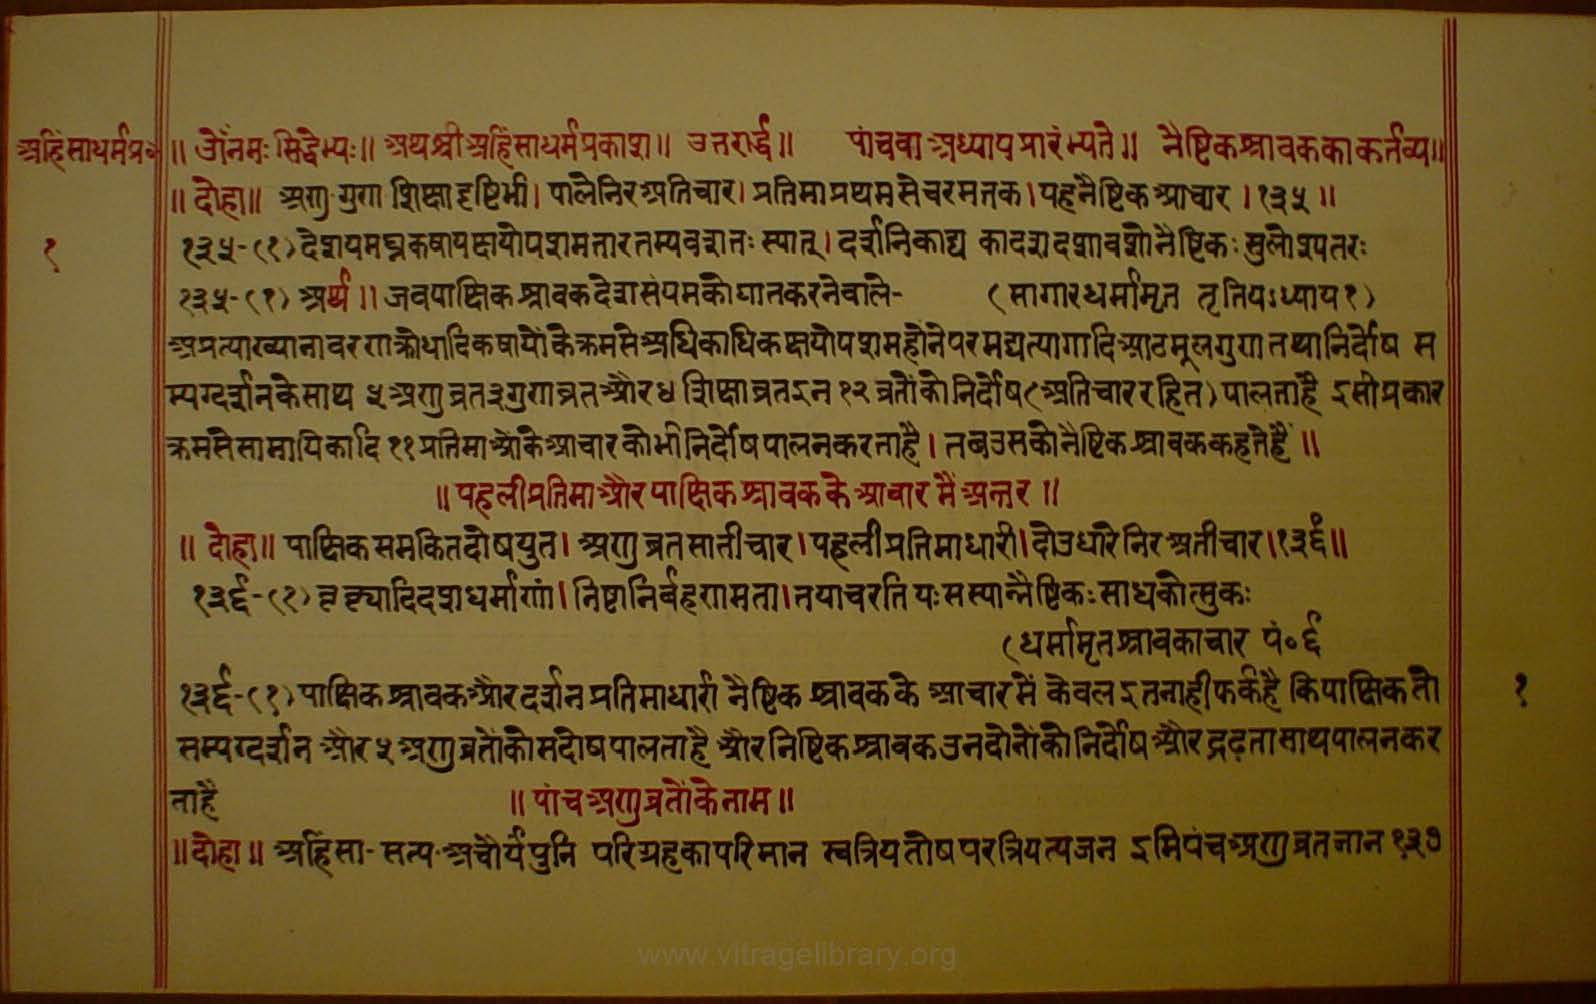 अहिंसाधर्मप्र० ॥ ॐ नमः सिद्धेभ्यः ॥ अथ श्री अहिंसाधर्मप्रकाश ॥ उत्तरार्द्ध ॥ पांचवा अध्याय प्रारंभ्यते ॥ नैष्टिक श्रावक का कर्तव्य ॥
॥ दोहा ॥ अणु-गुण शिक्षा दृष्टि भी । पाले निर अतिचार । प्रतिमा प्रथम से चरम तक । यह नैष्टिक आचार । १३५ ॥
१ १३५-(१) देशयमघ्नकषायक्षयोपशमतारतम्यवशतः स्यात् । दर्शनिकाद्य कादशदशावशो नैष्टिकः सुलेश्यतरः
१३५-(१) अर्थ ॥ जब पाक्षिक श्रावक देश संयम को घात करने वाले- (सागारधर्मामृत तृतियऽध्याय १)
अप्रत्याख्यानावरण क्रोधादि कषायों के क्रम से अधिकाधिक क्षयोपशम होने पर मद्यत्यागादि आठ मूलगुण तथा निर्दोष स
म्यग्दर्शन के साथ ५ अणुव्रत ३ गुणाव्रत और ४ शिक्षाव्रत इन १२ व्रतों को निर्दोष (अतिचार रहित) पालता है इसी प्रकार
क्रम से सामायिकादि ११ प्रतिमाओं के आचार को भी निर्दोष पालन करता है । तब उसको नैष्टिक श्रावक कहते हैं ॥
॥ पहली प्रतिमा और पाक्षिक श्रावक के आचार में अन्तर ॥
॥ दोहा ॥ पाक्षिक समकित दोषयुत । अणुव्रत सातीचार । पहली प्रतिमाधारी । दोउ धारे निर अतीचार । १३६ ॥
१३६-(१) दृष्ट्यादिदशधर्माणां । निष्टानिर्बहणामता । तयाचरति यः सस्यान्नैष्टिकः साधकोत्सुकः
(धर्मामृत श्रावकाचार पं० ६
१३६-(१) पाक्षिक श्रावक और दर्शन प्रतिमाधारी नैष्टिक श्रावक के आचार में केवल इतनाही फर्क है कि पाक्षिक तो १
सम्यग्दर्शन और ५ अणुव्रतों को सदोष पालता है और निष्टिक श्रावक उन दोनों को निर्दोष और द्रढ़ता साथ पालन कर
ता है ॥ पांच अणुव्रतों के नाम ॥
॥ दोहा ॥ अहिंसा- सत्य- अचौर्य पुनि परिग्रह का परिमान स्वत्रिय तोष परत्रिय त्यजन इमि पंच अणुव्रत जान १३७
www.vitragelibrary.org